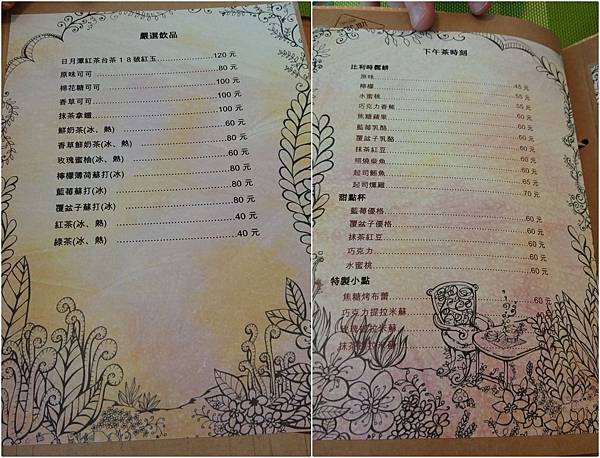 嚴選飲品
日月潭紅茶台茶１８號紅玉……120 元
原味可可……80 元
棉花糖可可……100 元
香草可可……100 元
抹茶拿鐵……100 元
鮮奶茶(冰、熱)……60 元
香草鮮奶茶(冰、熱)……80 元
玫瑰蜜柚(冰、熱)……60 元
檸檬薄荷蘇打(冰)……80 元
藍莓蘇打(冰)……80 元
覆盆子蘇打(冰)……80 元
紅茶(冰、熱)……40 元
綠茶(冰、熱)……40 元
下午茶時刻
比利時鬆餅
原味……45 元
檸檬……55 元
水蜜桃……55 元
巧克力香蕉……60 元
焦糖蘋果……60 元
藍莓乳酪……60 元
覆盆子乳酪……60 元
抹茶紅豆……60 元
照燒柴魚……60 元
起司鮪魚……65 元
起司燻雞……70 元
甜點杯
藍莓優格……60 元
覆盆子優格……60 元
抹茶紅豆……60 元
巧克力……60 元
水蜜桃……60 元
特製小點
焦糖烤布蕾……60 元
巧克力提拉米蘇……元
玫瑰提拉米蘇
抹茶提拉米蘇